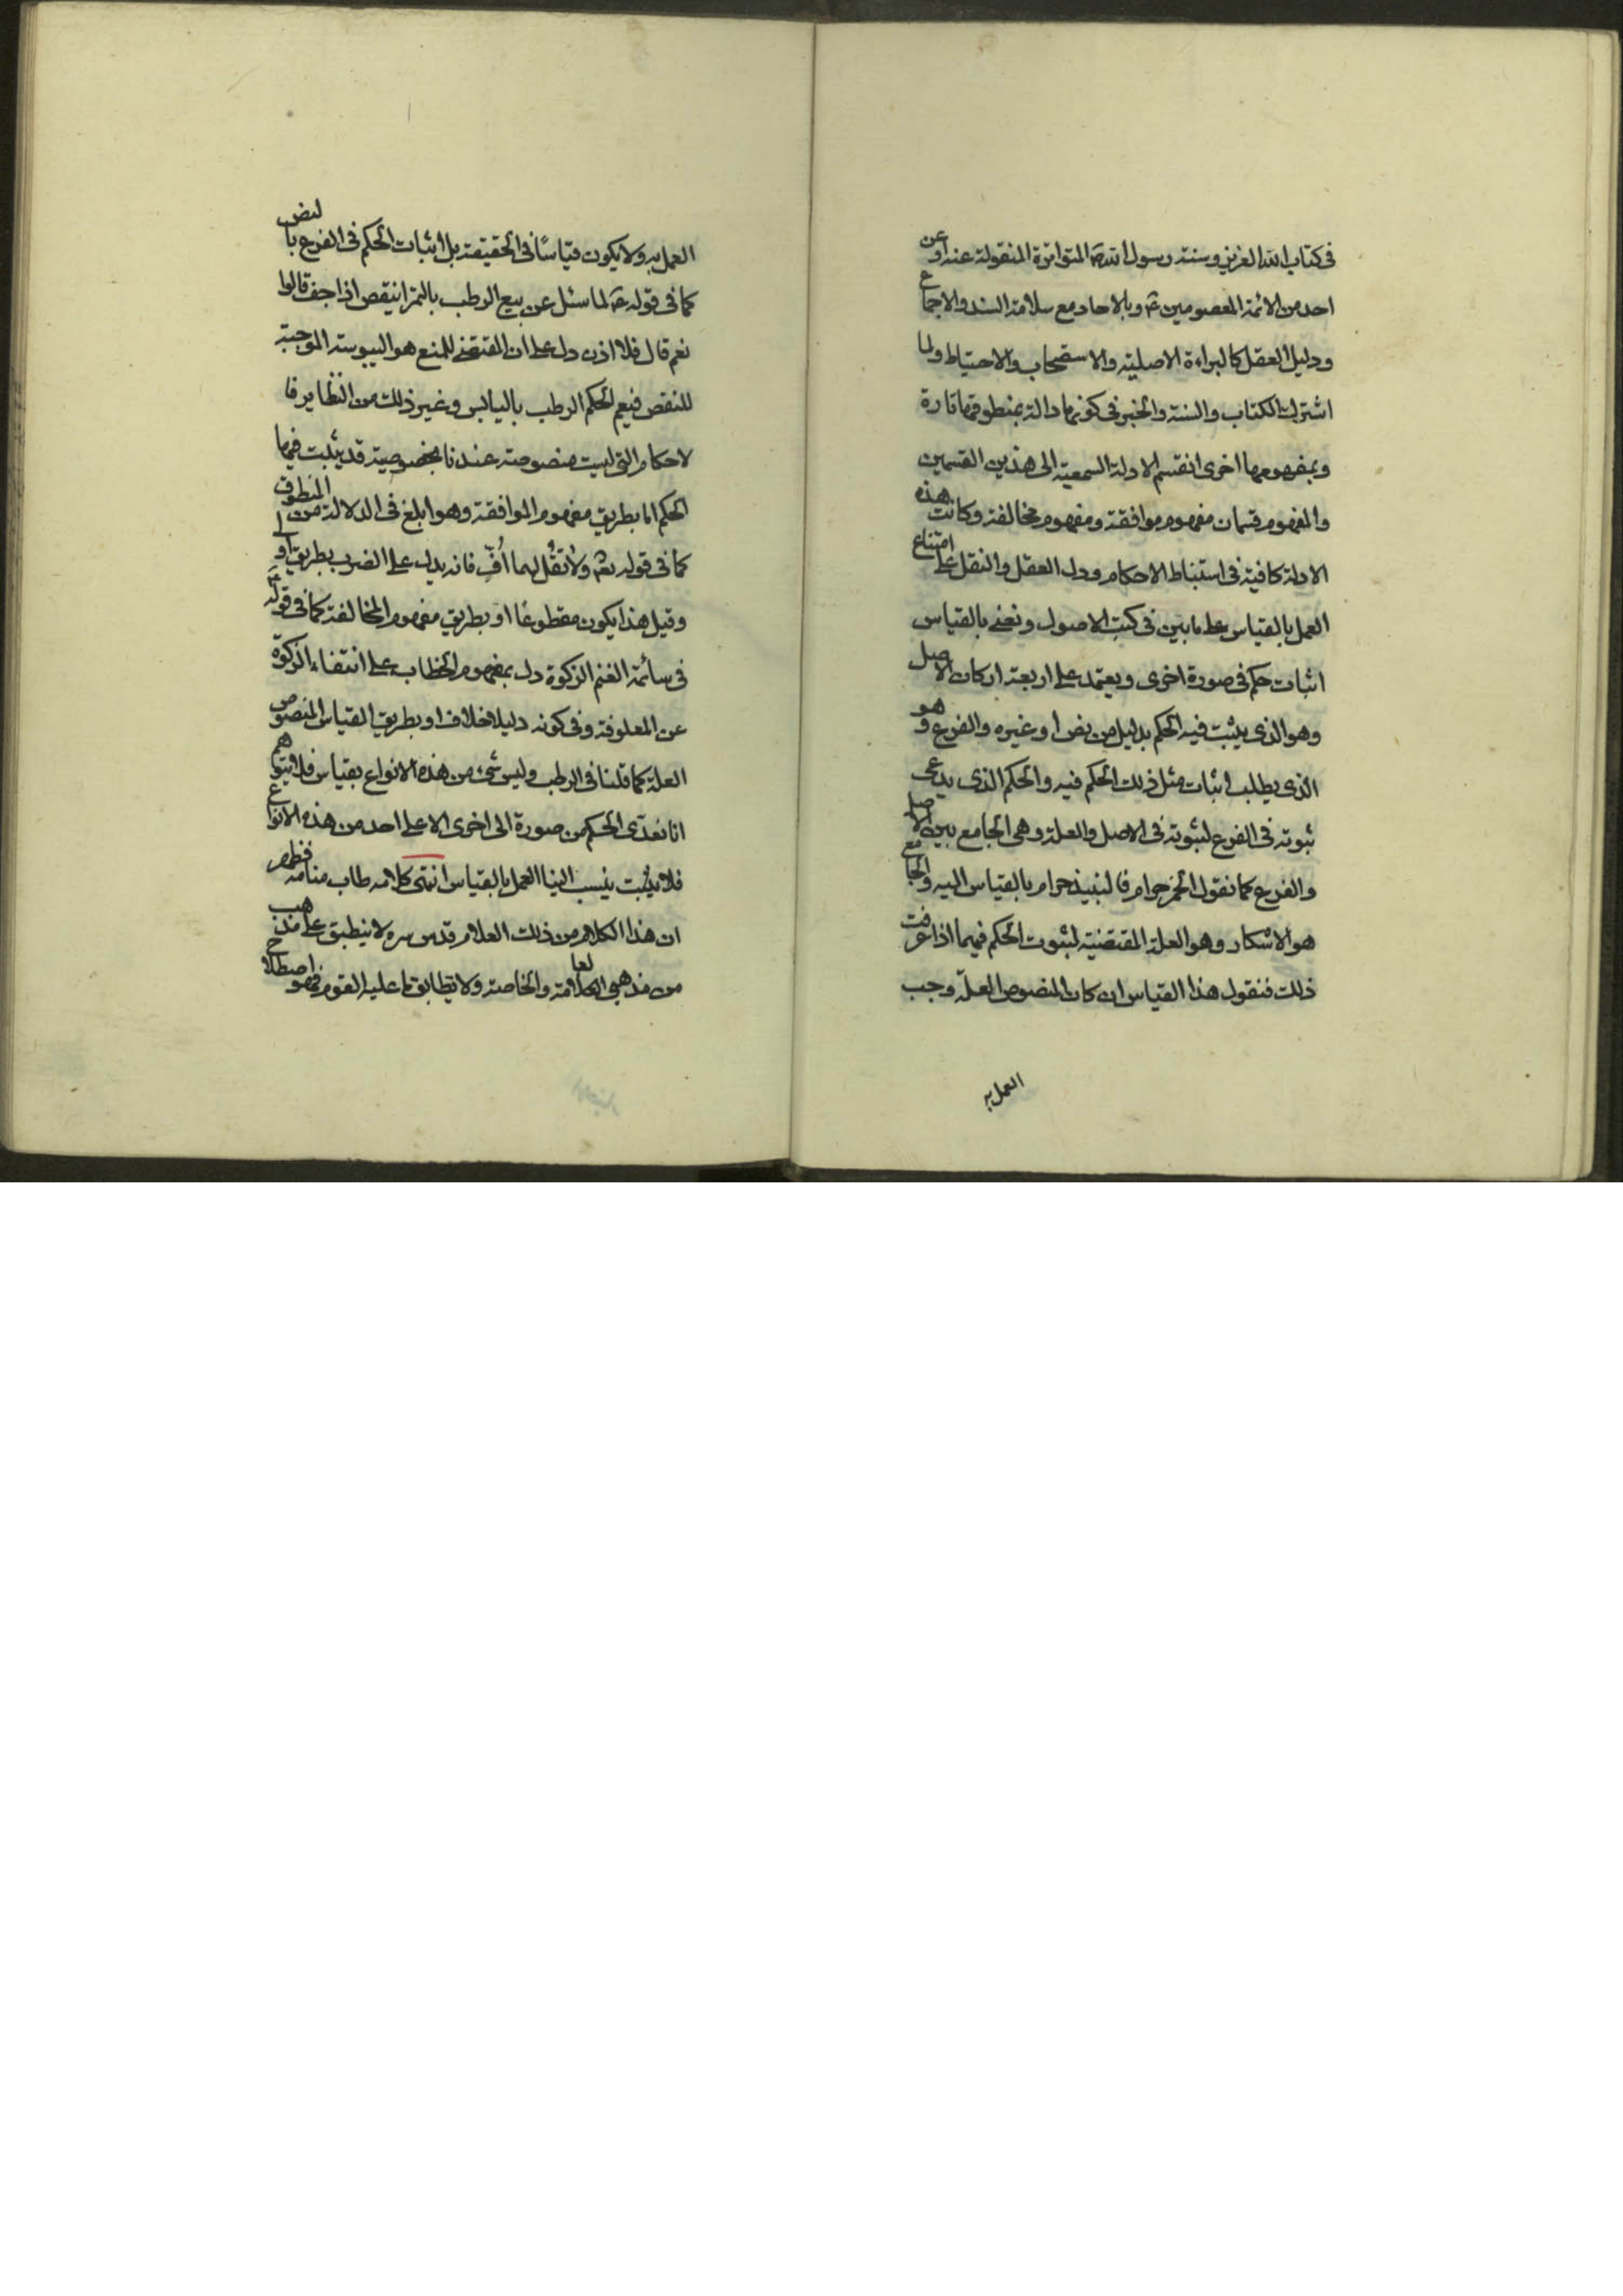 فى كتاب الله العزيز وسنة رسول الله ص المتواترة المنقولة عنه او عن
احد من الائمة المعصومين ع و بالاحاد مع سلامة السند والاجماع
ودليل العقل كالبراءة الاصلية والاستصحاب والاحتياط ولما
اشترك الكتاب والسنة والخبر فى كونها دالة بمنطوقها تارة
وبمفهومها اخرى انقسم الادلة السمعية الى هذين القسمين
والمفهوم قسمان مفهوم موافقة ومفهوم مخالفة وكانت هذه
الادلة كافية فى استنباط الاحكام ودل العقل والنقل على امتناع
العمل بالقياس على ما بين فى كتب الاصول ونعنى بالقياس
اثبات حكم فى صورة اخرى ويعتمد على اربعة اركان الاصل
وهو الذى يثبت فيه الحكم بدليل من نص او غيره والفرع وهو
الذى يطلب اثبات مثل ذلك الحكم فيه والحكم الذى يدعى
ثبوته فى الفرع لثبوته فى الاصل والعلة وهى الجامع بين الاصل
والفرع كما نقول الخمر حرام فالنبيذ حرام بالقياس اليه والجامع
هو الاسكار وهو العلة المقتضية لثبوت الحكم فيهما اذا عرفت
ذلك فنقول هذا القياس ان كان المنصوص العلّة وجب
العمل به
العمل به ولا يكون قياسًا فى الحقيقة بل اثبات الحكم فى الفرع بالنص
كما فى قوله ص لما سئل عن بيع الرطب بالتمر اينقص اذا جف قالوا
نعم قال فلا اذن دل على ان المقتضى للمنع هو اليبوسة الموجبة
للنقص فيعم الحكم الرطب باليابس وغير ذلك من النظاير فا
لاحكام التى ليست منصوصة عندنا بخصوصية قد يثبت فيها
الحكم اما بطريق مفهوم الموافقة وهو ابلغ فى الدلالة من المنطوق
كما فى قوله تع ولا تقُل لهما اُفٍّ فانه يدل على الضرب بطريق اولى
وقيل هذا يكون مقطوعًا او بطريق مفهوم المخالفة كما فى قوله ع
فى سائمة الغنم الزكوة دل بمفهوم الخطاب على انتفاء الزكوة
عن المعلوفة وفى كونه دليلا خلاف او بطريق القياس المنصوص
العلة كما قلنا فى الرطب وليس شئ من هذه الانواع بقياس فلا يتوهم
انا نعدّى الحكم من صورة الى اخرى الا على احد من هذه الانواع
فلا يثبت ينسب الينا العمل بالقياس انتهى كلامه طاب منامه فظهر
ان هذا الكلام من ذلك العلام قدس سره لا ينطبق على مذهب
من مذهبى العامة والخاصة ولا يطابق ما عليه القوم فهو اصطلاح